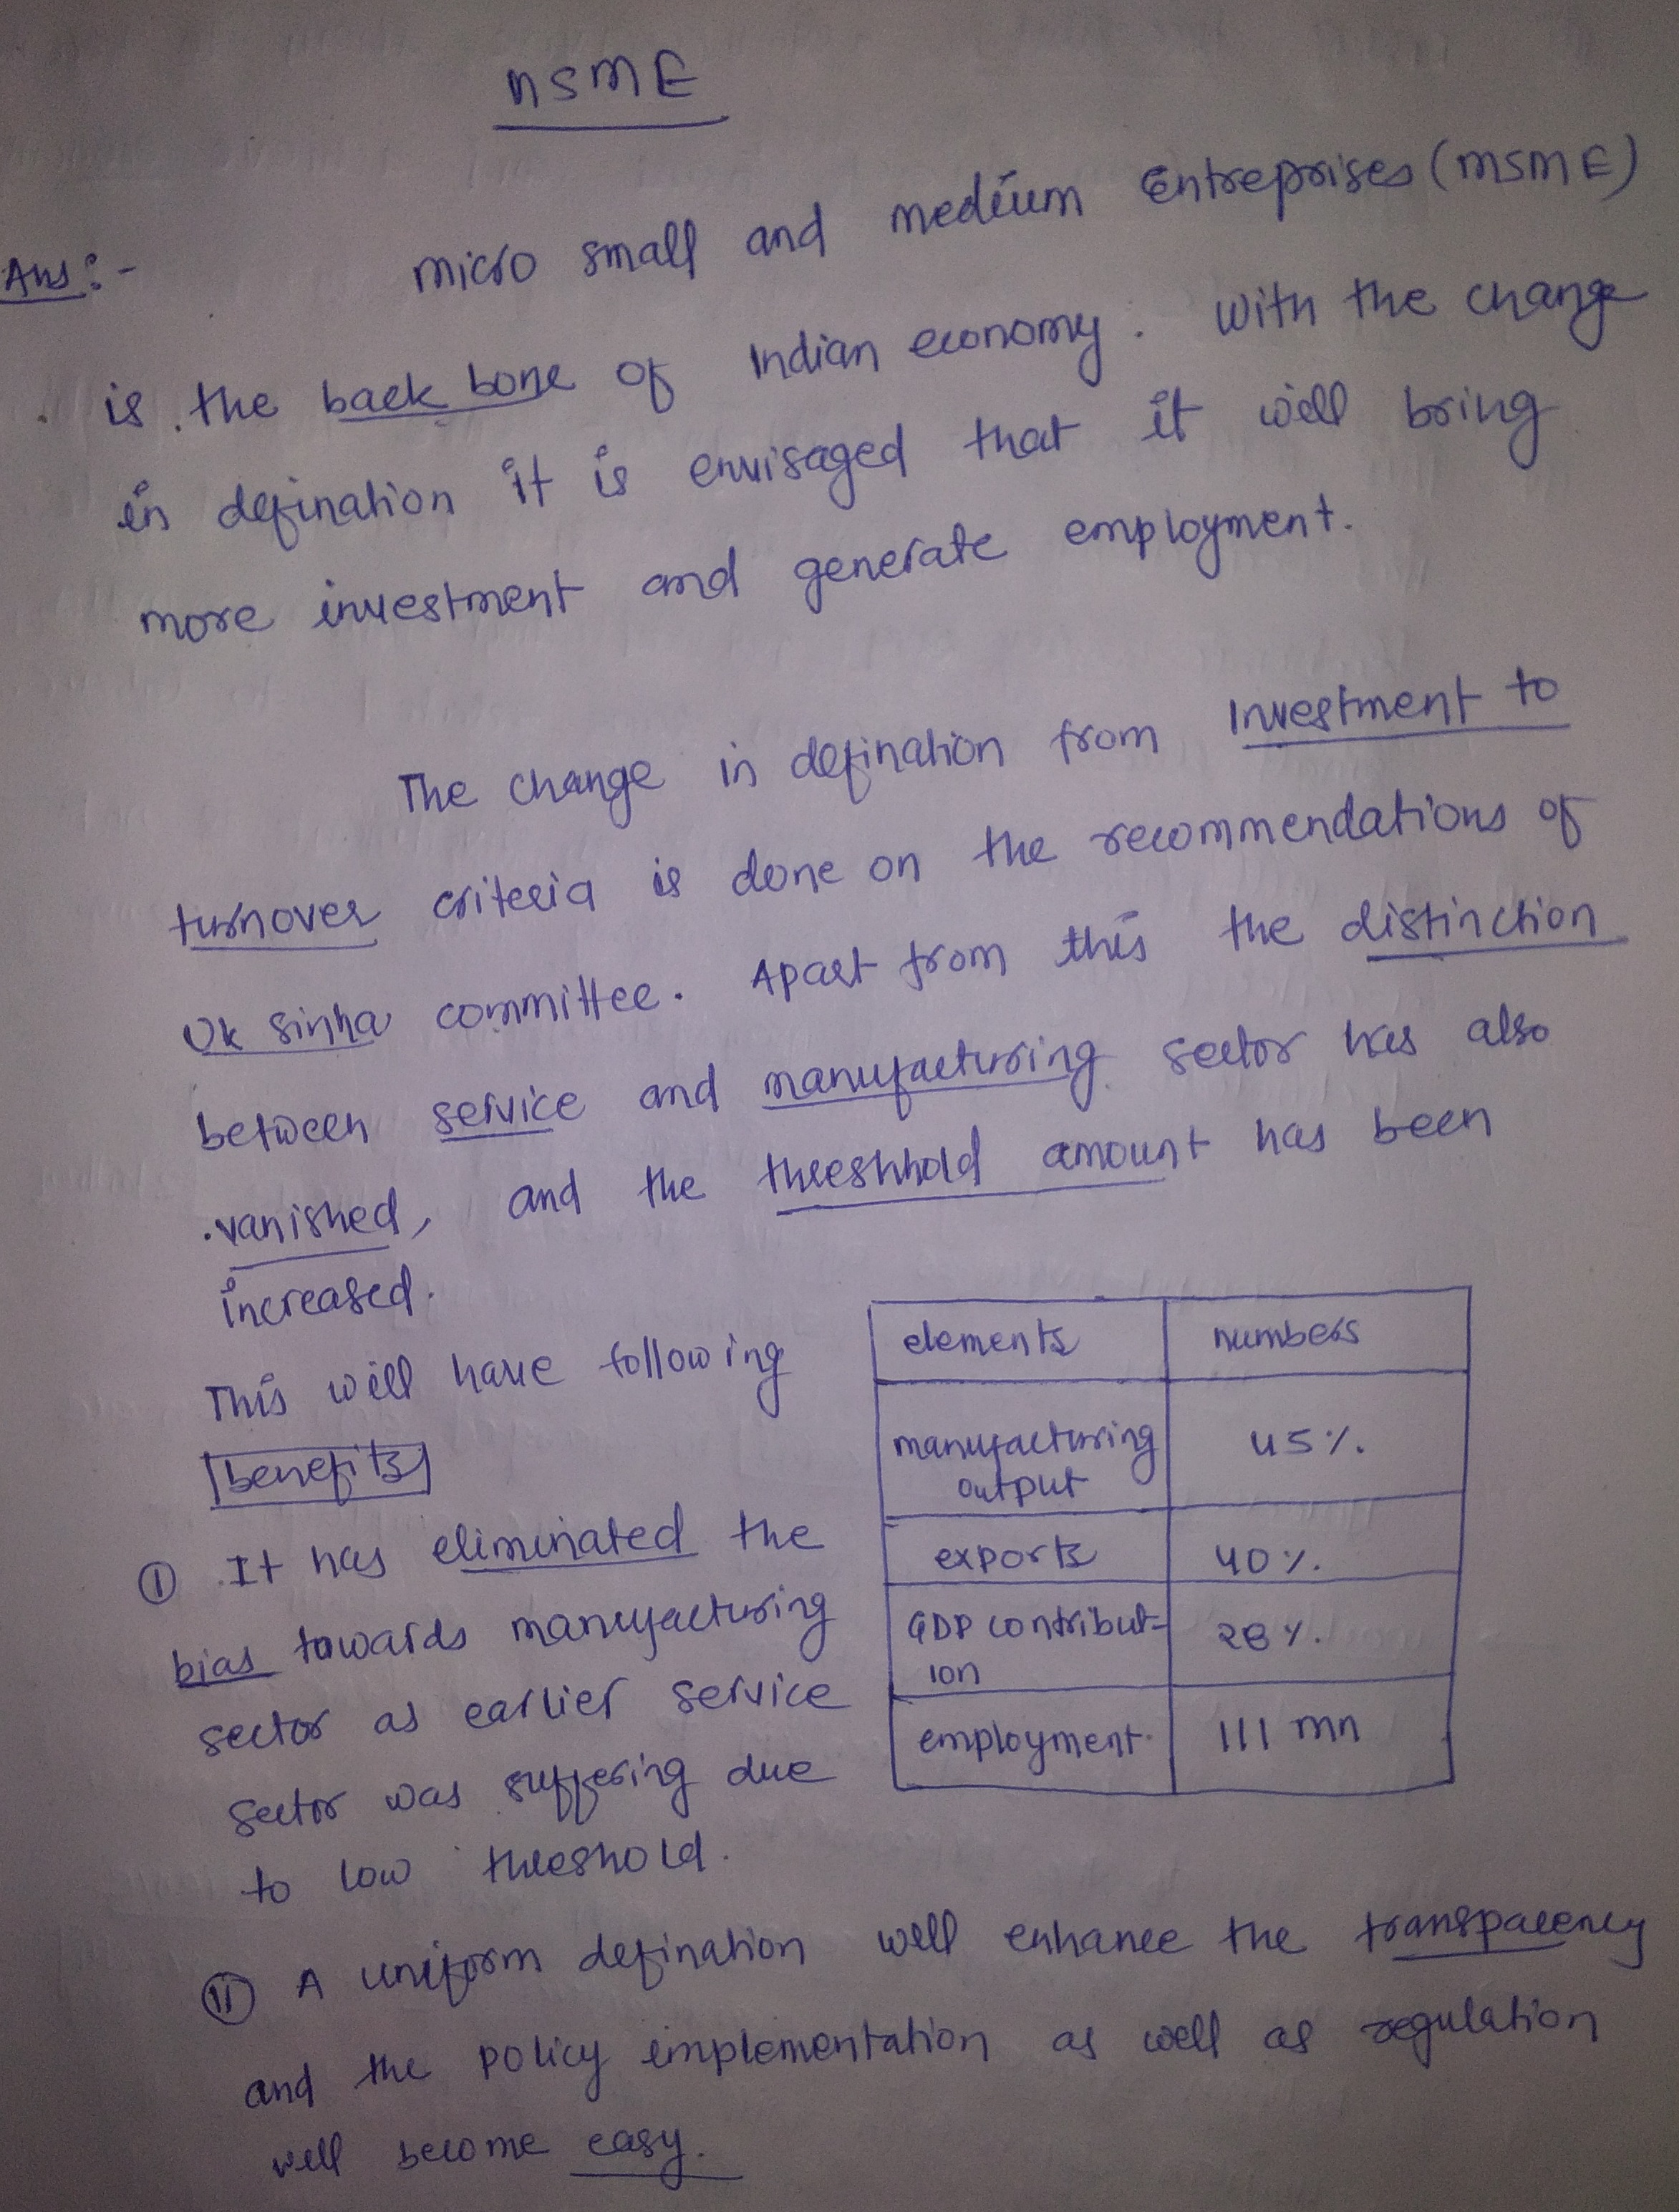 MSME
Ans:- Micro small and medium Entreprises (MSME)
is the back bone of Indian economy. With the change
in defination it is envisaged that it will bring
more investment and generate employment.
The change in defination from Investment to
turnover criteria is done on the recommendations of
UK Sinha committee. Apart from this the distinction
between service and manufacturing sector has also
vanished, and the threshhold amount has been
increased.
This will have following
benefits
(I) It has eliminated the
bias towards manufacturing
sector as earlier service
sector was suffering due
to low threshold.
elements numbers
manufacturing 45%.
output
exports 40%.
GDP contribut- 28%.
ion
employment. 111 mn
(II) A uniform defination will enhance the transparency
and the policy implementation as well as regulation
will become easy.